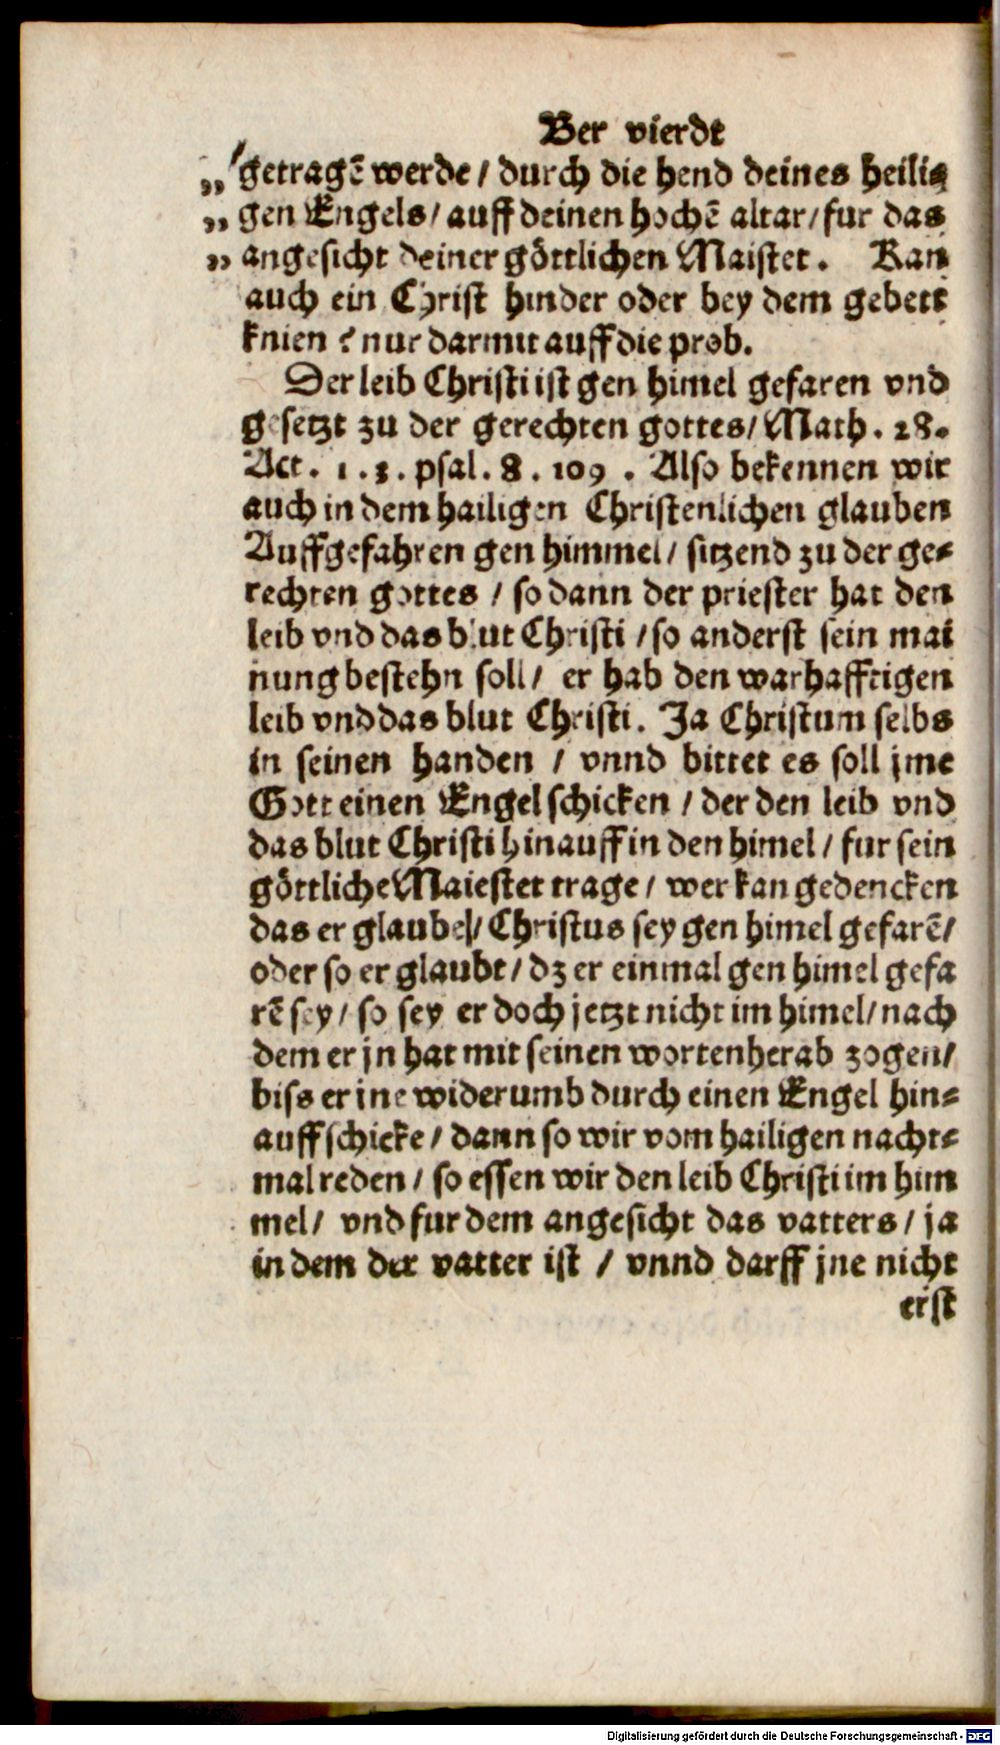 Ber vierdt
„ getragē werde / durch die hend deines heili⸗
„ gen Engels / auff deinen hochē altar / fur das
„ angesicht deiner göttlichen Maistet . Kan
auch ein Christ hinder oder bey dem gebett
knien ? nur darmit auff die prob.
Der leib Christi ist gen himel gefaren vnd
gesetzt zu der gerechten gottes / Math . 28.
Act . 1 . 3 . psal . 8 . 109 . Also bekennen wir
auch in dem hailigen Christenlichen glauben
Auffgefahren gen himmel / sitzend zu der ge⸗
rechten gottes / so dann der priester hat den
leib vnd das blut Christi / so anderst sein mai
nung bestehn soll / er hab den warhafftigen
leib vnd das blut Christi . Ja Christum selbs
in seinen handen / vnnd bittet es soll jme
Gott einen Engel schicken / der den leib vnd
das blut Christi hinauff in den himel / fur sein
göttliche Maiestet trage / wer kan gedencken
das er glaube / Christus sey gen himel gefarē /
oder so er glaubt / dz er einmal gen himel gefa
rē sey / so sey er doch jetzt nicht im himel / nach
dem er jn hat mit seinen worten herab zogen /
biss er ine widerumb durch einen Engel hin⸗
auff schicke / dann so wir vom hailigen nacht⸗
mal reden / so essen wir den leib Christi im him
mel / vnd fur dem angesicht das vatters / ja
in dem der vatter ist / vnnd darff jne nicht
erst
Digitalisierung gefördert durch die Deutsche Forschungsgemeinschaft - DFG